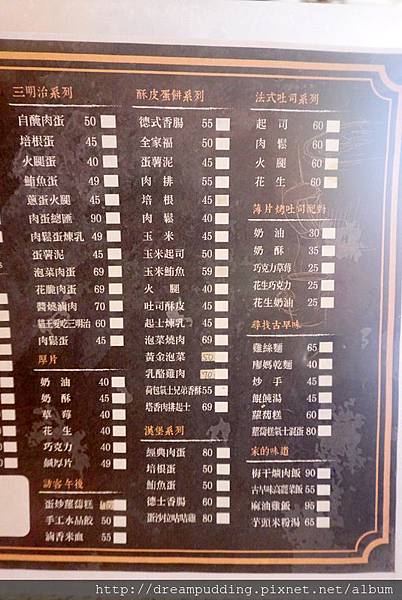 三明治系列
白醃肉蛋 50
培根蛋 45
火腿蛋 40
鮪魚蛋 49
蔥蛋火腿 45
肉蛋總匯 90
肉鬆蛋煉乳 49
蛋薯泥 45
泡菜肉蛋 69
花脆肉蛋 69
醬燒滷肉 70
貓王愛吃三明治 60
肉鬆蛋 45
厚片
奶油 40
奶酥 45
草莓 40
花生 40
巧克力 40
鹹厚片 50
訪客午後
蛋炒蘿蔔糕
手工水晶餃 50
滷香米血 55
酥皮蛋餅系列
德式香腸 55
全家福 50
蛋薯泥 45
肉排 55
培根 45
肉鬆 40
玉米 45
玉米起司 50
玉米鮪魚 59
火腿 40
吐司酥皮 45
起士煉乳 45
泡菜燒肉 69
黃金泡菜 50
乳酪雞肉 70
荷包氣士兄弟香酥 55
塔香肉排起士 69
漢堡系列
經典肉蛋 80
培根蛋 50
鮪魚蛋 50
德士香腸 60
蛋沙拉咕咕雞 80
法式吐司系列
起司 60
肉鬆 60
火腿 60
花生 60
薄片烤吐司配對
奶油 30
奶酥 35
巧克力草莓 25
花生巧克力 25
花生奶油 25
尋找古早味
雞絲麵 65
廖媽乾麵 40
炒手 45
餛飩湯 45
蘿蔔糕 60
蘿蔔糕氣士混蛋 80
家的味道
梅干爌肉飯 90
古早味高麗菜飯 55
麻油雞飯 95
芋頭米粉湯 65
http://dreampudding.pixnet.net/album